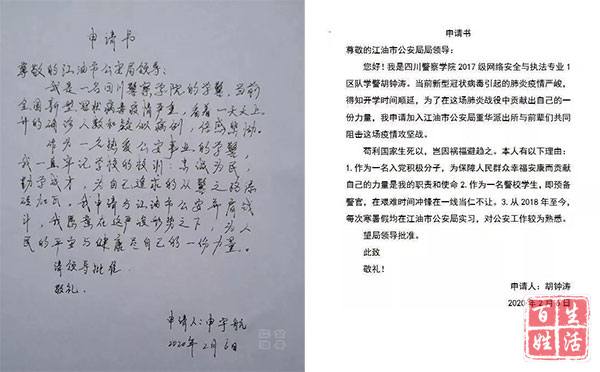 申请书
尊敬的江油市公安局领导：
我是一名四川警察学院的学警，当前
全国新型冠状病毒疫情严重，看着一天天上
升的确诊人数和疑似病例，倍感悲恸。
作为一名热爱公安事业的学警，
我一直牢记学校的校训：忠诚为民，
勤学成才，为自己追求的从警之路添
砖加瓦，我申请与江油市公安并肩战
斗，我愿意在这严峻形势之下，为人
民的平安与健康尽自己的一份力量。
请领导批准。
敬礼。
申请人：申宇航
2020年2月6日
申请书
尊敬的江油市公安局局领导：
您好！我是四川警察学院 2017 级网络安全与执法专业 1
区队学警胡钟涛。当前新型冠状病毒引起的肺炎疫情严峻，
得知开学时间顺延，为了在这场肺炎战役中贡献出自己的一
份力量，我申请加入江油市公安局重华派出所与前辈们共同
阻击这场疫情攻坚战。
苟利国家生死以，岂因祸福避趋之。本人有以下理由：
1.作为一名入党积极分子，为保障人民群众幸福安康而贡献
自己的力量是我的职责和使命 2.作为一名警校学生，即预备
警官，在艰难时间冲锋在一线当仁不让。3.从 2018 年至今，
每次寒暑假均在江油市公安局实习，对公安工作较为熟悉。
望局领导批准。
此致
敬礼！
申请人：胡钟涛
2020 年 2 月 6 日
百姓生活